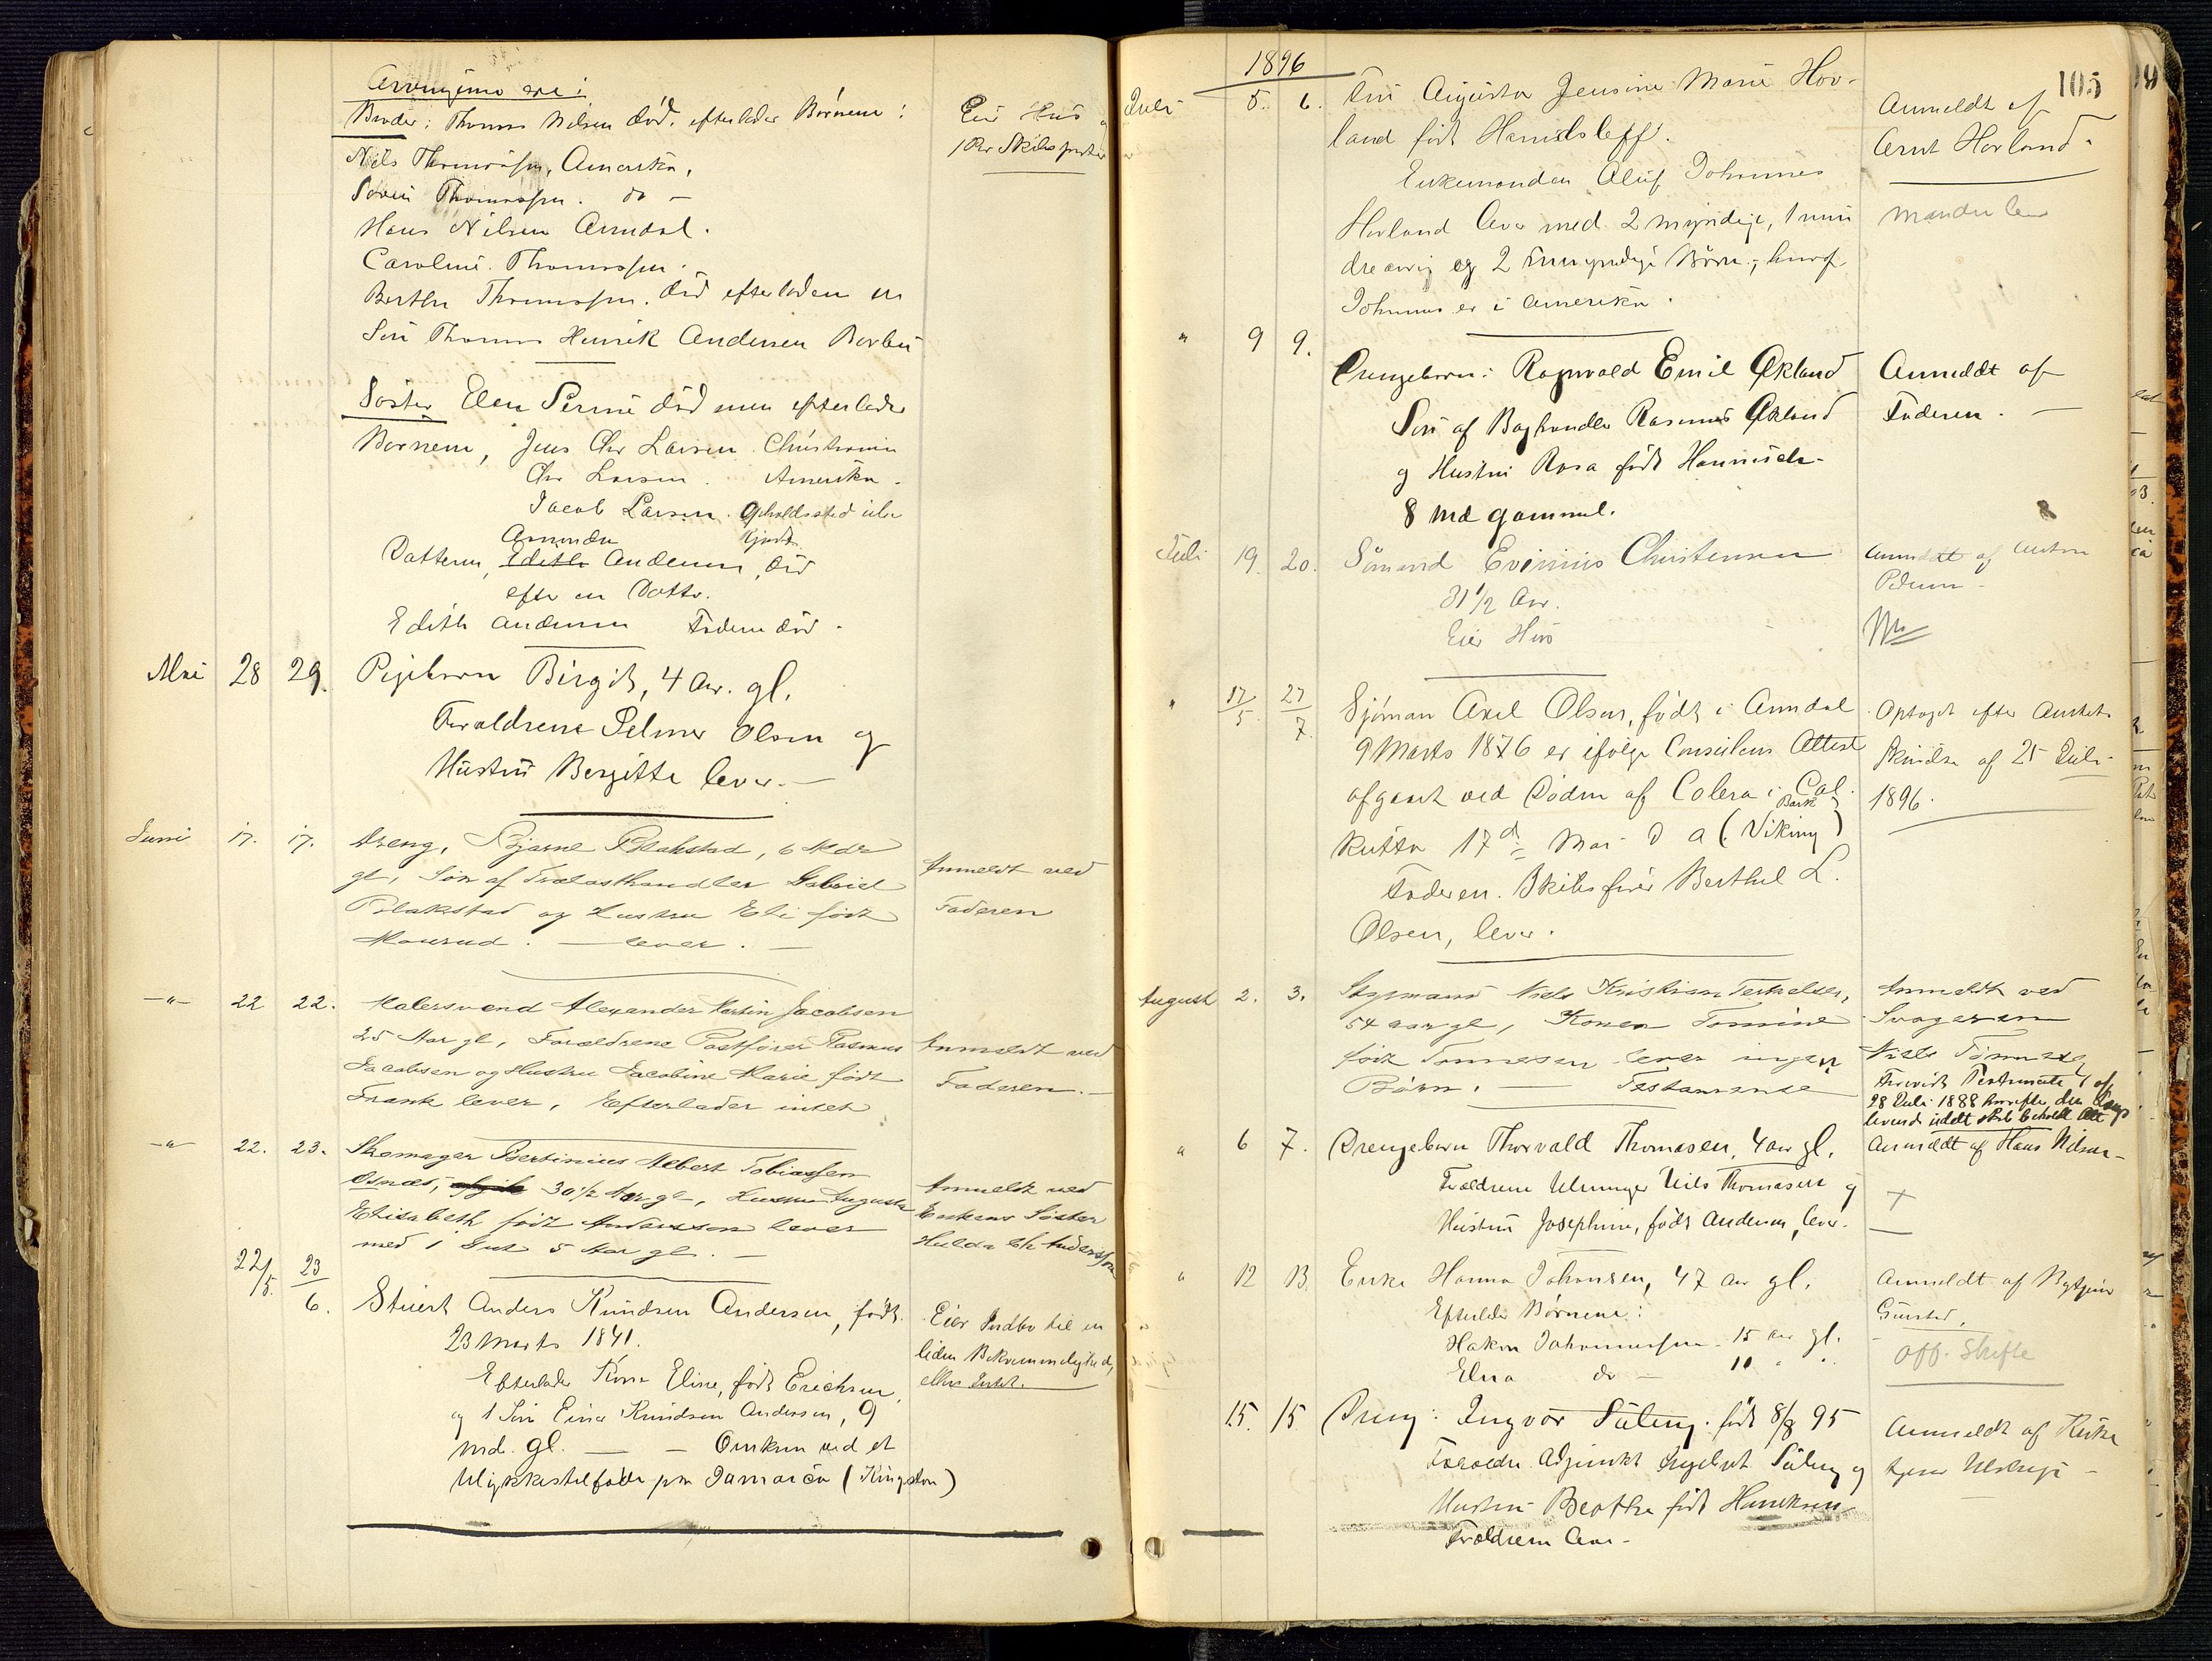 Arvingerne ere:
Broder: Thomas Nilsen död. efterlader Börnene:
Eier Hus
Nils Thomassen, Amerika,
Sören Thomassen. do —
Hans Nilsen Arendal.
Caroline Thomassen.
Berthe Thomassen. död efterladen en
Sön Thomas Henrik Andersen Barbu
Söster Elen Serine död men efterlader
Börnene, Jens Chr Larsen Christiania
Chr Larsen. Amerika.
Jacob Larsen. Opholdssted
Amanda
Datteren, Edith Andersen, död
efter en Datter.
Edith Andersen Faderen död.
Mai 28 29. Pigebarn Birgit, 4 Aar. gl.
Foraldrene Selmer Olsen og
Hustru Bergitte lever. —
Juni 17. 17. Dreng, Bjarne Blakstad, 6 Mdr
gl, Søn af Trælasthandler Gabriel
Blakstad og Hustru Eli født
Mourud. — lever. —
Anmeldt ved
Faderen
—"— 22 22. Malersvend Alexander Martin Jacobsen
25 Aar gl, Forældrene Postfører Rasmus
Jacobsen og Hustru Jacobine Marie født
Frank lever, Efterlader intet
Anmeldt ved
Faderen. —
—"— 22. 23. Skomager Bertinius Albert Tobiassen
Osnæs, 30½ Aar gl, Hustru Augusta
Elisabeth født Andersson lever
med 1 Gut 5 Aar gl. —
Anmeldt ved
Enkens Søster
Hulda Andersson
22/5. 23/6. Stuert Anders Knudsen Andersen, födt
23 Marts 1841.
Efterlader Kone Eline, födt Erichsen,
og 1 Sön Einar Knudsen Andersen, 9
md. gl. — — Omkom ved et
Ulykkestilfælde paa Jamaica (Kingston)
Eier Indbo til en
liden Bekvemmelighed,
ellers Intet.
1896
105
Juli 5. 6. Fru Augusta Jensine Marie Hov-
land födt
Enkemanden Oluf Johannes
Hovland lever med 2 myndige, 1 min
dreaarig og 2 umyndige Börn, hvoraf
Johannes er i Amerika.
Anmeldt af
Arnt Hovland.
Manden lever
" 9 9. Drengebarn: Ragnvald Emil Økland
Sön af Boghandler Rasmus Økland
og Hustru Rosa födt
8 Md gammel.
Anmeldt af
Faderen. —
Juli 19. 20. Sömand Evinius Christensen
31½ Aar.
Eier Hus
Anmeldt af Anton
Pedersen
" 17/5 27/7. Sjöman Axel Olsen, födt i Arendal
9 Marts 1876 er ifölge Consulens Attest
afgaaet ved Döden af Colera i Cal-
kutta 17de Mai d A (Bark Viking)
Faderen. Skibsförer Berthel L.
Olsen, lever.
Optaget efter
af 25 Juli
1896.
August 2. 3. Styrmand Niels Kristian Terkelsen,
54 aar gl, Konen Tomine
født Tønnesen lever ingen
Børn. — Testamente
Anmeldt ved
Svogeren
Niels Tønnesen
Testamente af
28 Juli 1888 hvorefter den Længst
levende
" 6 7. Drengebarn Thorvald Thomasen, 4 aar gl.
Foraldrene Nils Thomasen og
Hustru Josephine, födt Andersen, lever.
Anmeldt af Hans Nilsen —
" 12 13. Enke Hanna Johansen, 47 aar gl.
Efterlader Börnene:
Hakon Johannessen 15 aar gl.
Elna do — 10 " "
Anmeldt af
Off. Skifte
15. 15 Dreng: Ingvar Süleng. födt 8/8 95
Foraeldre Adjunkt Süleng og
Hustru Berthe födt Henriksen
Forældrene lever —
Anmeldt af Kirke
tjener